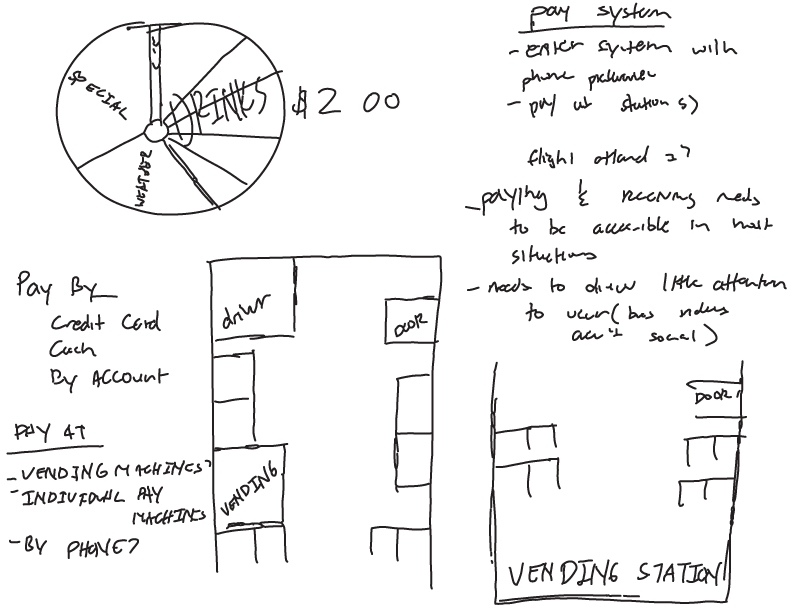 SPECIAL
DRINKS $2 00
WEATHER
pay system
- enter system with
phone
- pay at station(s)
flight attend s?
- paying & receiving needs
to be accessible in most
situations
- needs to draw little attention
to user (bus riders
aren't social)
Pay By
Credit Card
Cash
By Account
PAY AT
- VENDING MACHINES?
- INDIVIDUAL PAY
MACHINES
- BY PHONE?
driver
DOOR
VENDING
DOOR
VENDING STATION